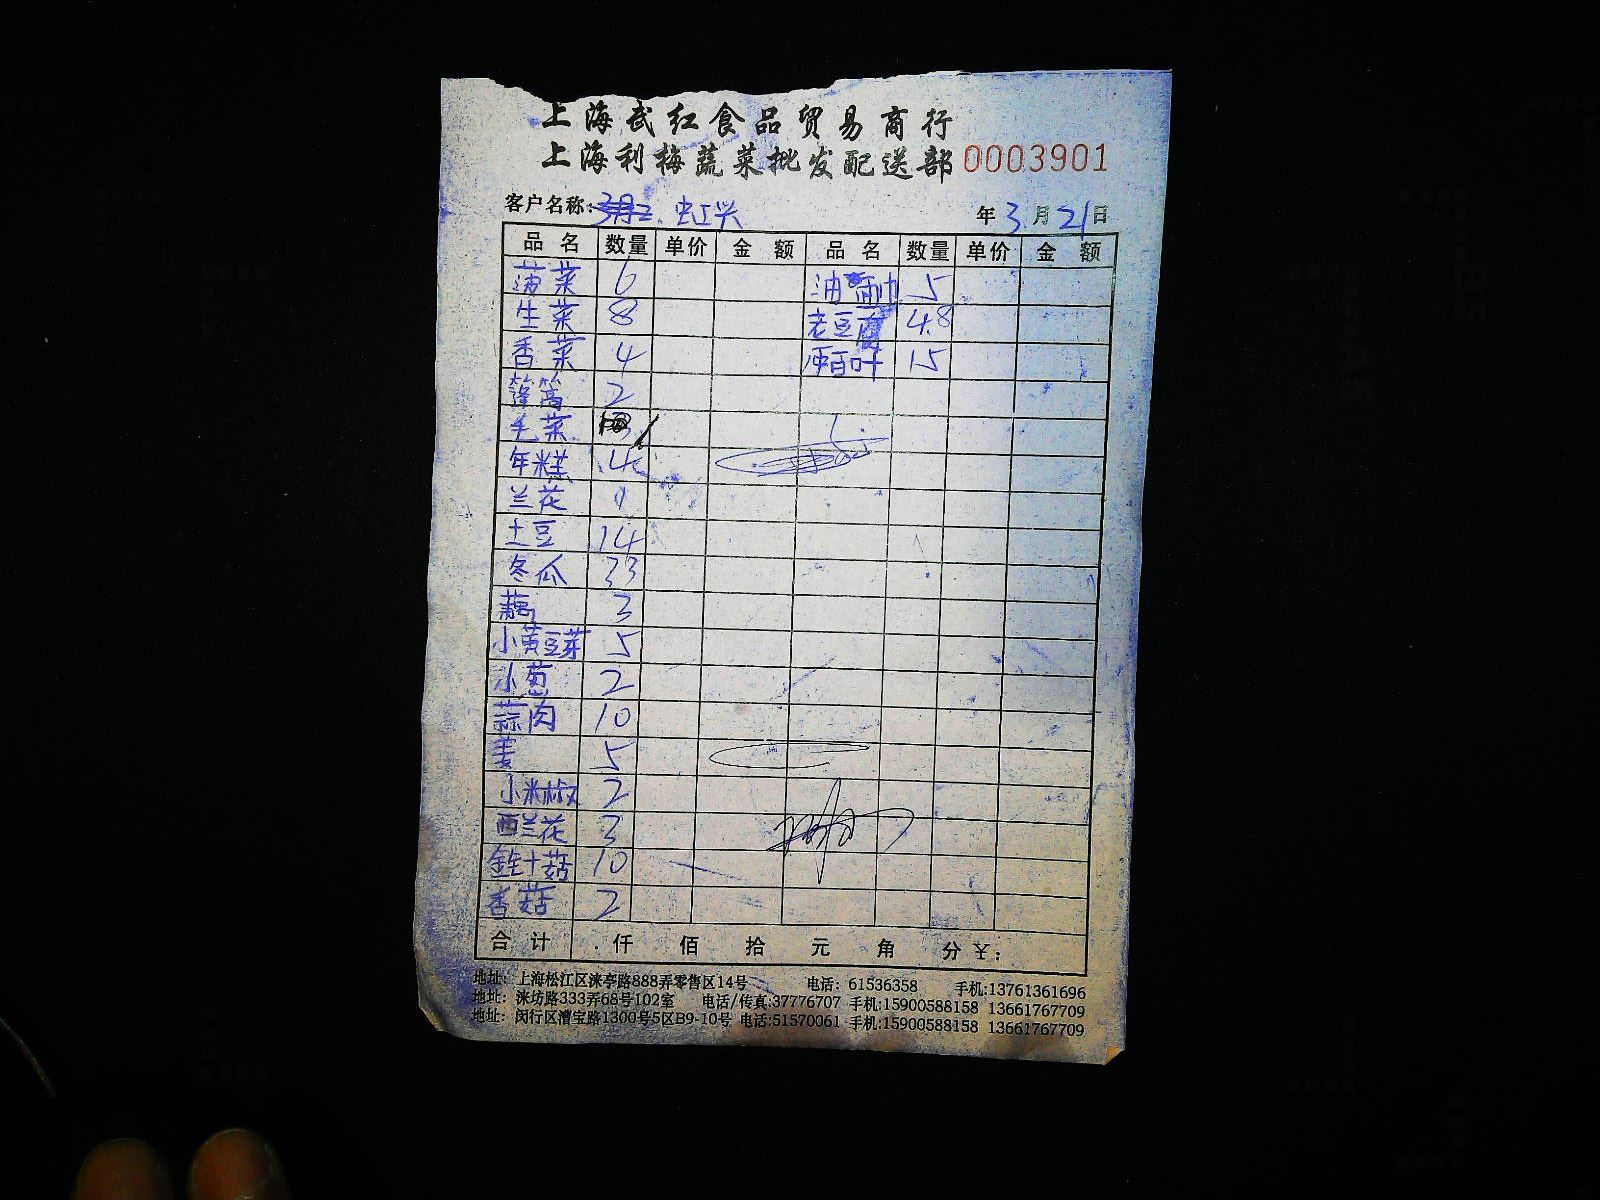 上海武红食品贸易商行
上海利梅蔬菜批发配送部 0003901
客户名称: 虹兴 年 3 月 21 日
品名 数量 单价 金额 品名 数量 单价 金额
菠菜 6 油 5
生菜 8 老豆腐 4.8
香菜 4 百叶 15
蓬蒿 2
毛菜
年糕 14
兰花
土豆 14
冬瓜 33
藕 3
小黄豆芽 5
小葱 2
蒜肉 10
姜 5
小米椒 2
西兰花 3
金针菇 10
香菇 2
合计 仟 佰 拾 元 角 分 ¥:
地址: 上海松江区涞亭路888弄零售区14号 电话: 61536358 手机:13761361696
地址: 涞坊路333弄68号102室 电话/传真:37776707 手机:15900588158 13661767709
地址: 闵行区漕宝路1300号5区B9-10号 电话:51570061 手机:15900588158 13661767709